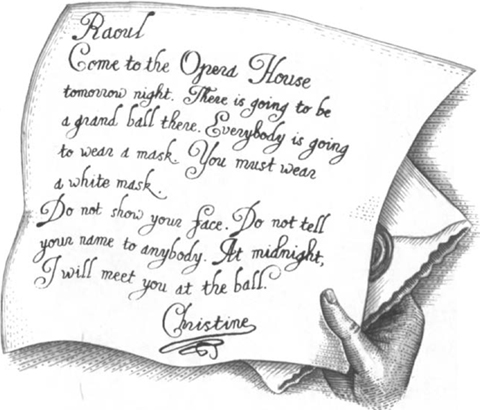 Raoul
Come to the Opera House
tomorrow night. There is going to be
a grand ball there. Everybody is going
to wear a mask. You must wear
a white mask.
Do not show your face. Do not tell
your name to anybody. At midnight,
I will meet you at the ball.
Christine